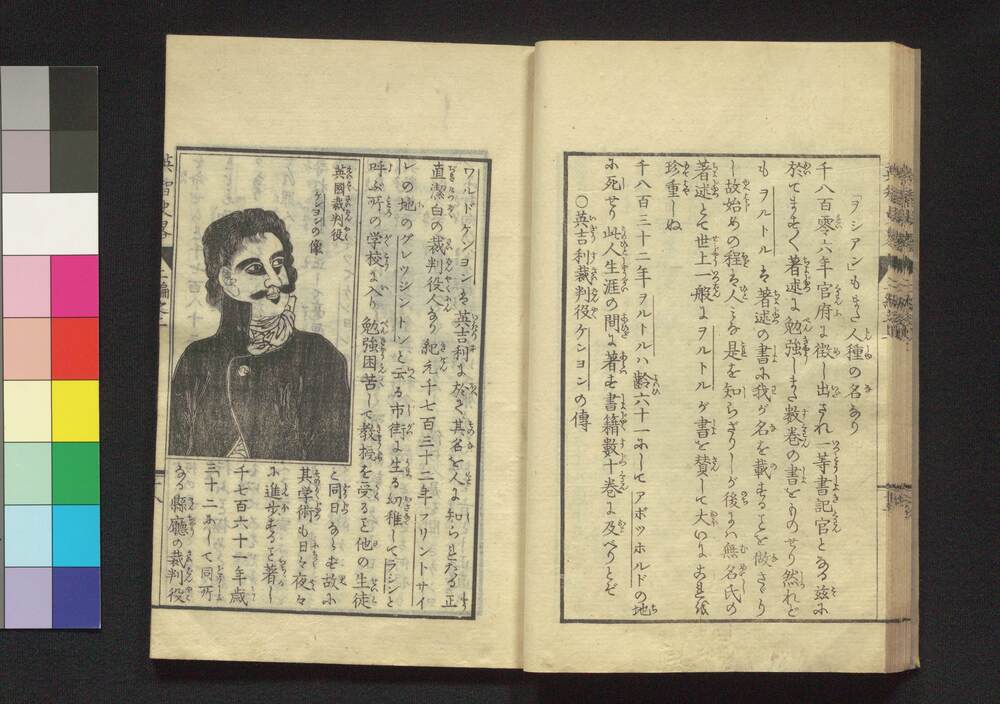 「ヲシアン」もまた人種の名なり
千八百零六年官府に徴し出され一等書記官となる茲に
於てまた〳〵著述に勉強しまた数巻の書をものせり然れど
も ヲルトル は著述の書に我が名を載することを做さゞり
し故始めの程は人々是を知らざりしが後には無名氏の
著述とて世上一般にヲルトルが書を賛して大いにこれを
珍重しぬ
千八百三十二年ヲルトルハ齢六十一にしてアボツホルドの地
に死せり此人生涯の間に著せし書籍數十卷に及べりとぞ
○英吉利裁判役ケンヨンの傳
ワルド ケンヨンは英吉利に於て其名を人に知られたる正
直潔白の裁判役人なり紀元千七百三十二年フリントサイ
レの地のグレツジントンと云る市街に生る幼稚してラシンと
呼ぶ所の学校に入り勉強困苦して教授を受ること他の生徒
と同日ならず故に
其学術も日々夜々
に進歩すること著し
千七百六十一年歳
三十二にして同所
なる縣廳の裁判役
英國裁判役
ケンヨンの像